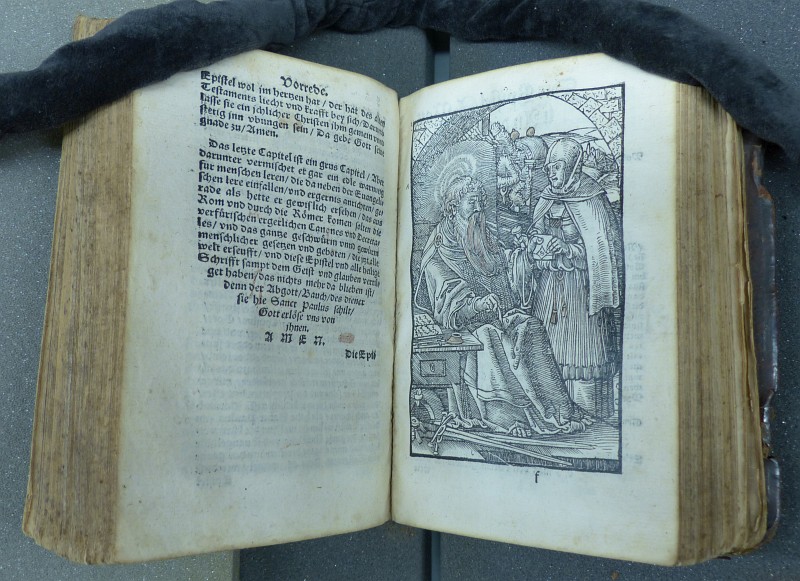 Vorrede.
Epistel wol im hertzen hat / der hat des alten
Testaments liecht vnd krafft bey sich / Darumb
lasse sie ein jchlicher Christen jhm gemein vnd
stetig inn vbungen sein / Da gebe Gott seine
gnade zu / Amen.
Das letzte Capitel ist ein grus Capitel / Aber
darunter vermischet er gar ein edle warnung
fur menschen leren / die da neben der Euangeli
schen lere einfallen / vnd ergernis anrichten / ge
rade als hette er gewislich ersehen / das aus
Rom vnd durch die Römer komen solten die
verfürischen ergerlichen Canones vnd Decreta
les / vnd das gantze geschwürm vnd gewürm
menschlicher gesetzen vnd geboten / die itzt alle
welt erseufft / vnd diese Epistel vnd alle heilige
Schrifft sampt dem Geist vnd glauben vertil
get haben / das nichts mehr da blieben ist /
denn der Abgott / Bauch / des diener
sie hie Sanct Paulus schilt /
Gott erlöse vns von
jhnen.
A M E N.
Die Epis
f